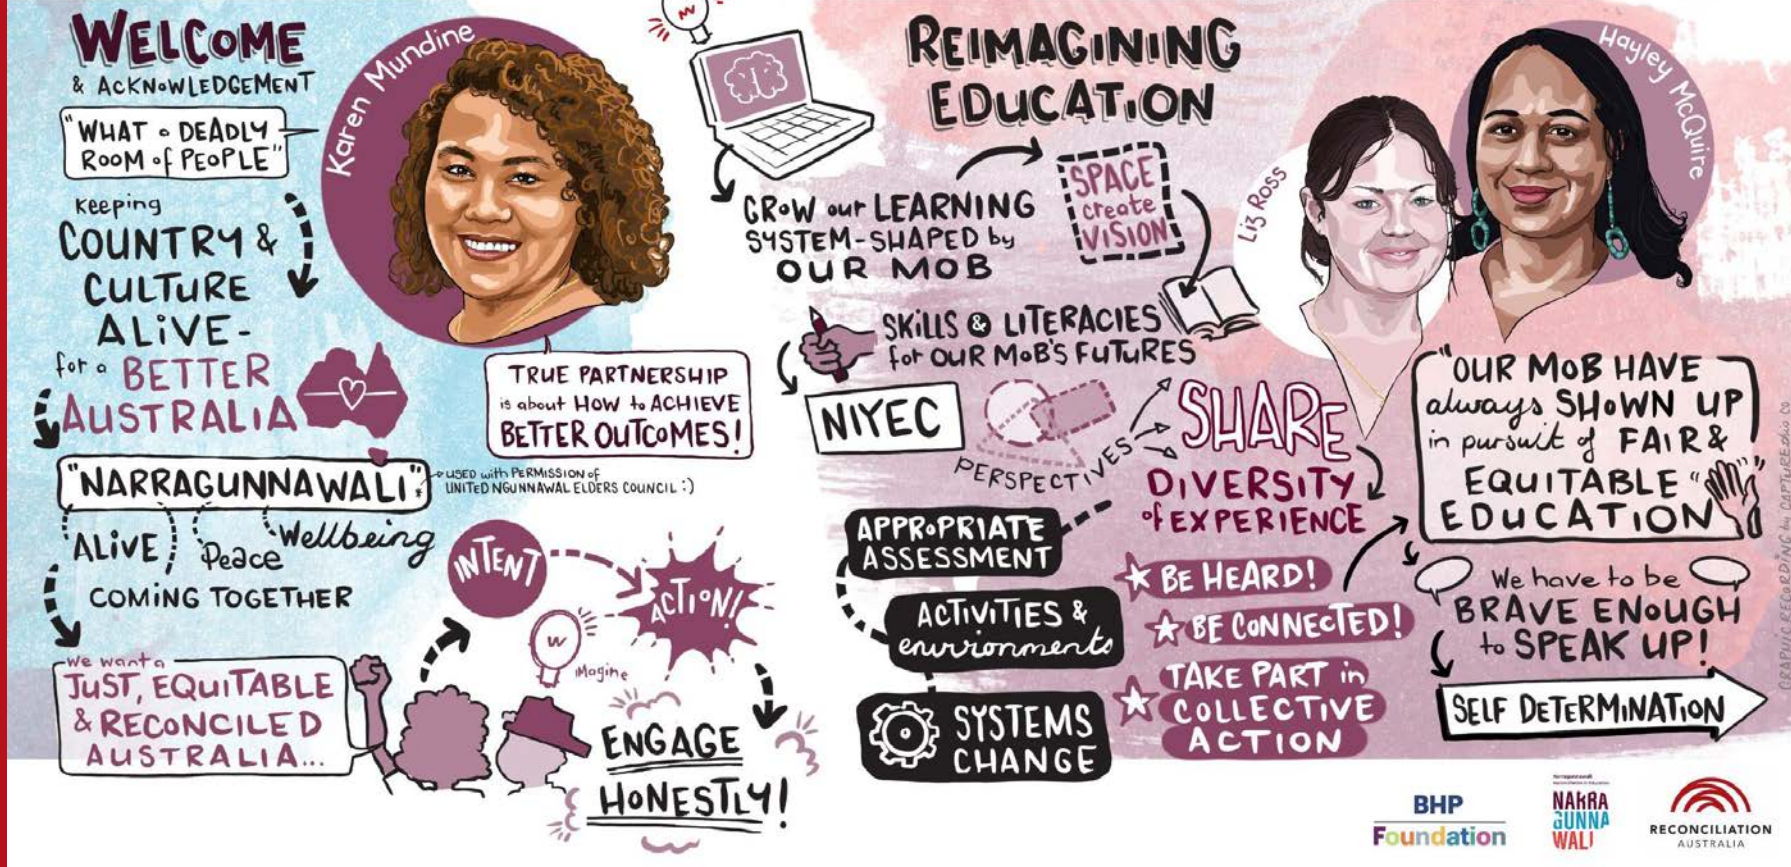 WELCOME
& ACKNOWLEDGEMENT
"WHAT a DEADLY
ROOM of PEOPLE"
Karen Mundine
Keeping
COUNTRY &
CULTURE
ALIVE -
for a BETTER
AUSTRALIA
TRUE PARTNERSHIP
is about HOW to ACHIEVE
BETTER OUTCOMES!
"NARRAGUNNAWALI"
USED with PERMISSION of
UNITED NGUNNAWAL ELDERS COUNCIL :)
ALIVE
Peace
Wellbeing
COMING TOGETHER
We want a
JUST, EQUITABLE
& RECONCILED
AUSTRALIA...
INTENT
ACTION!
iMagine
ENGAGE
HONESTLY!
REIMAGINING
EDUCATION
GROW our LEARNING
SYSTEM-SHAPED by
OUR MOB
SPACE
create
VISION
SKILLS & LITERACIES
for OUR MOB'S FUTURES
NIYEC
PERSPECTIVES
SHARE
DIVERSITY
of EXPERIENCE
APPROPRIATE
ASSESSMENT
ACTIVITIES &
environments
SYSTEMS
CHANGE
BE HEARD!
BE CONNECTED!
TAKE PART in
COLLECTIVE
ACTION
Liz Ross
Hayley McQuire
"OUR MOB HAVE
always SHOWN UP
in pursuit of FAIR &
EQUITABLE
EDUCATION"
We have to be
BRAVE ENOUGH
to SPEAK UP!
SELF DETERMINATION
BHP
Foundation
NARRA
GUNNA
WALI
RECONCILIATION
AUSTRALIA